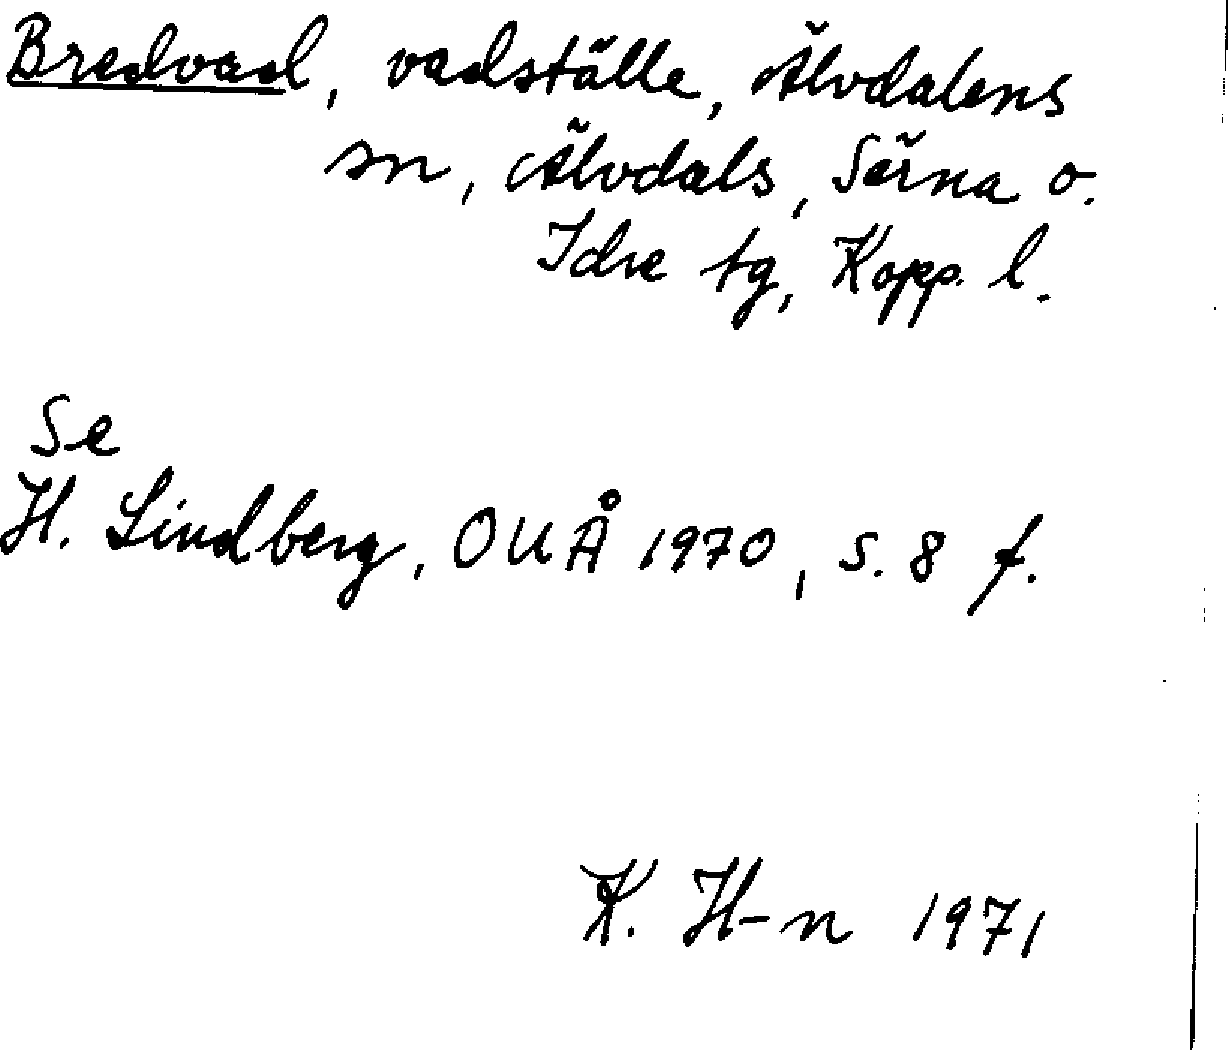 Bredvad, vadställe, Älvdalens
sn, Älvdals, Särna o.
Idre tg, Kopp. l.
Se
H. Lindberg, OUÅ 1970, s. 8 f.
K. H-n 1971